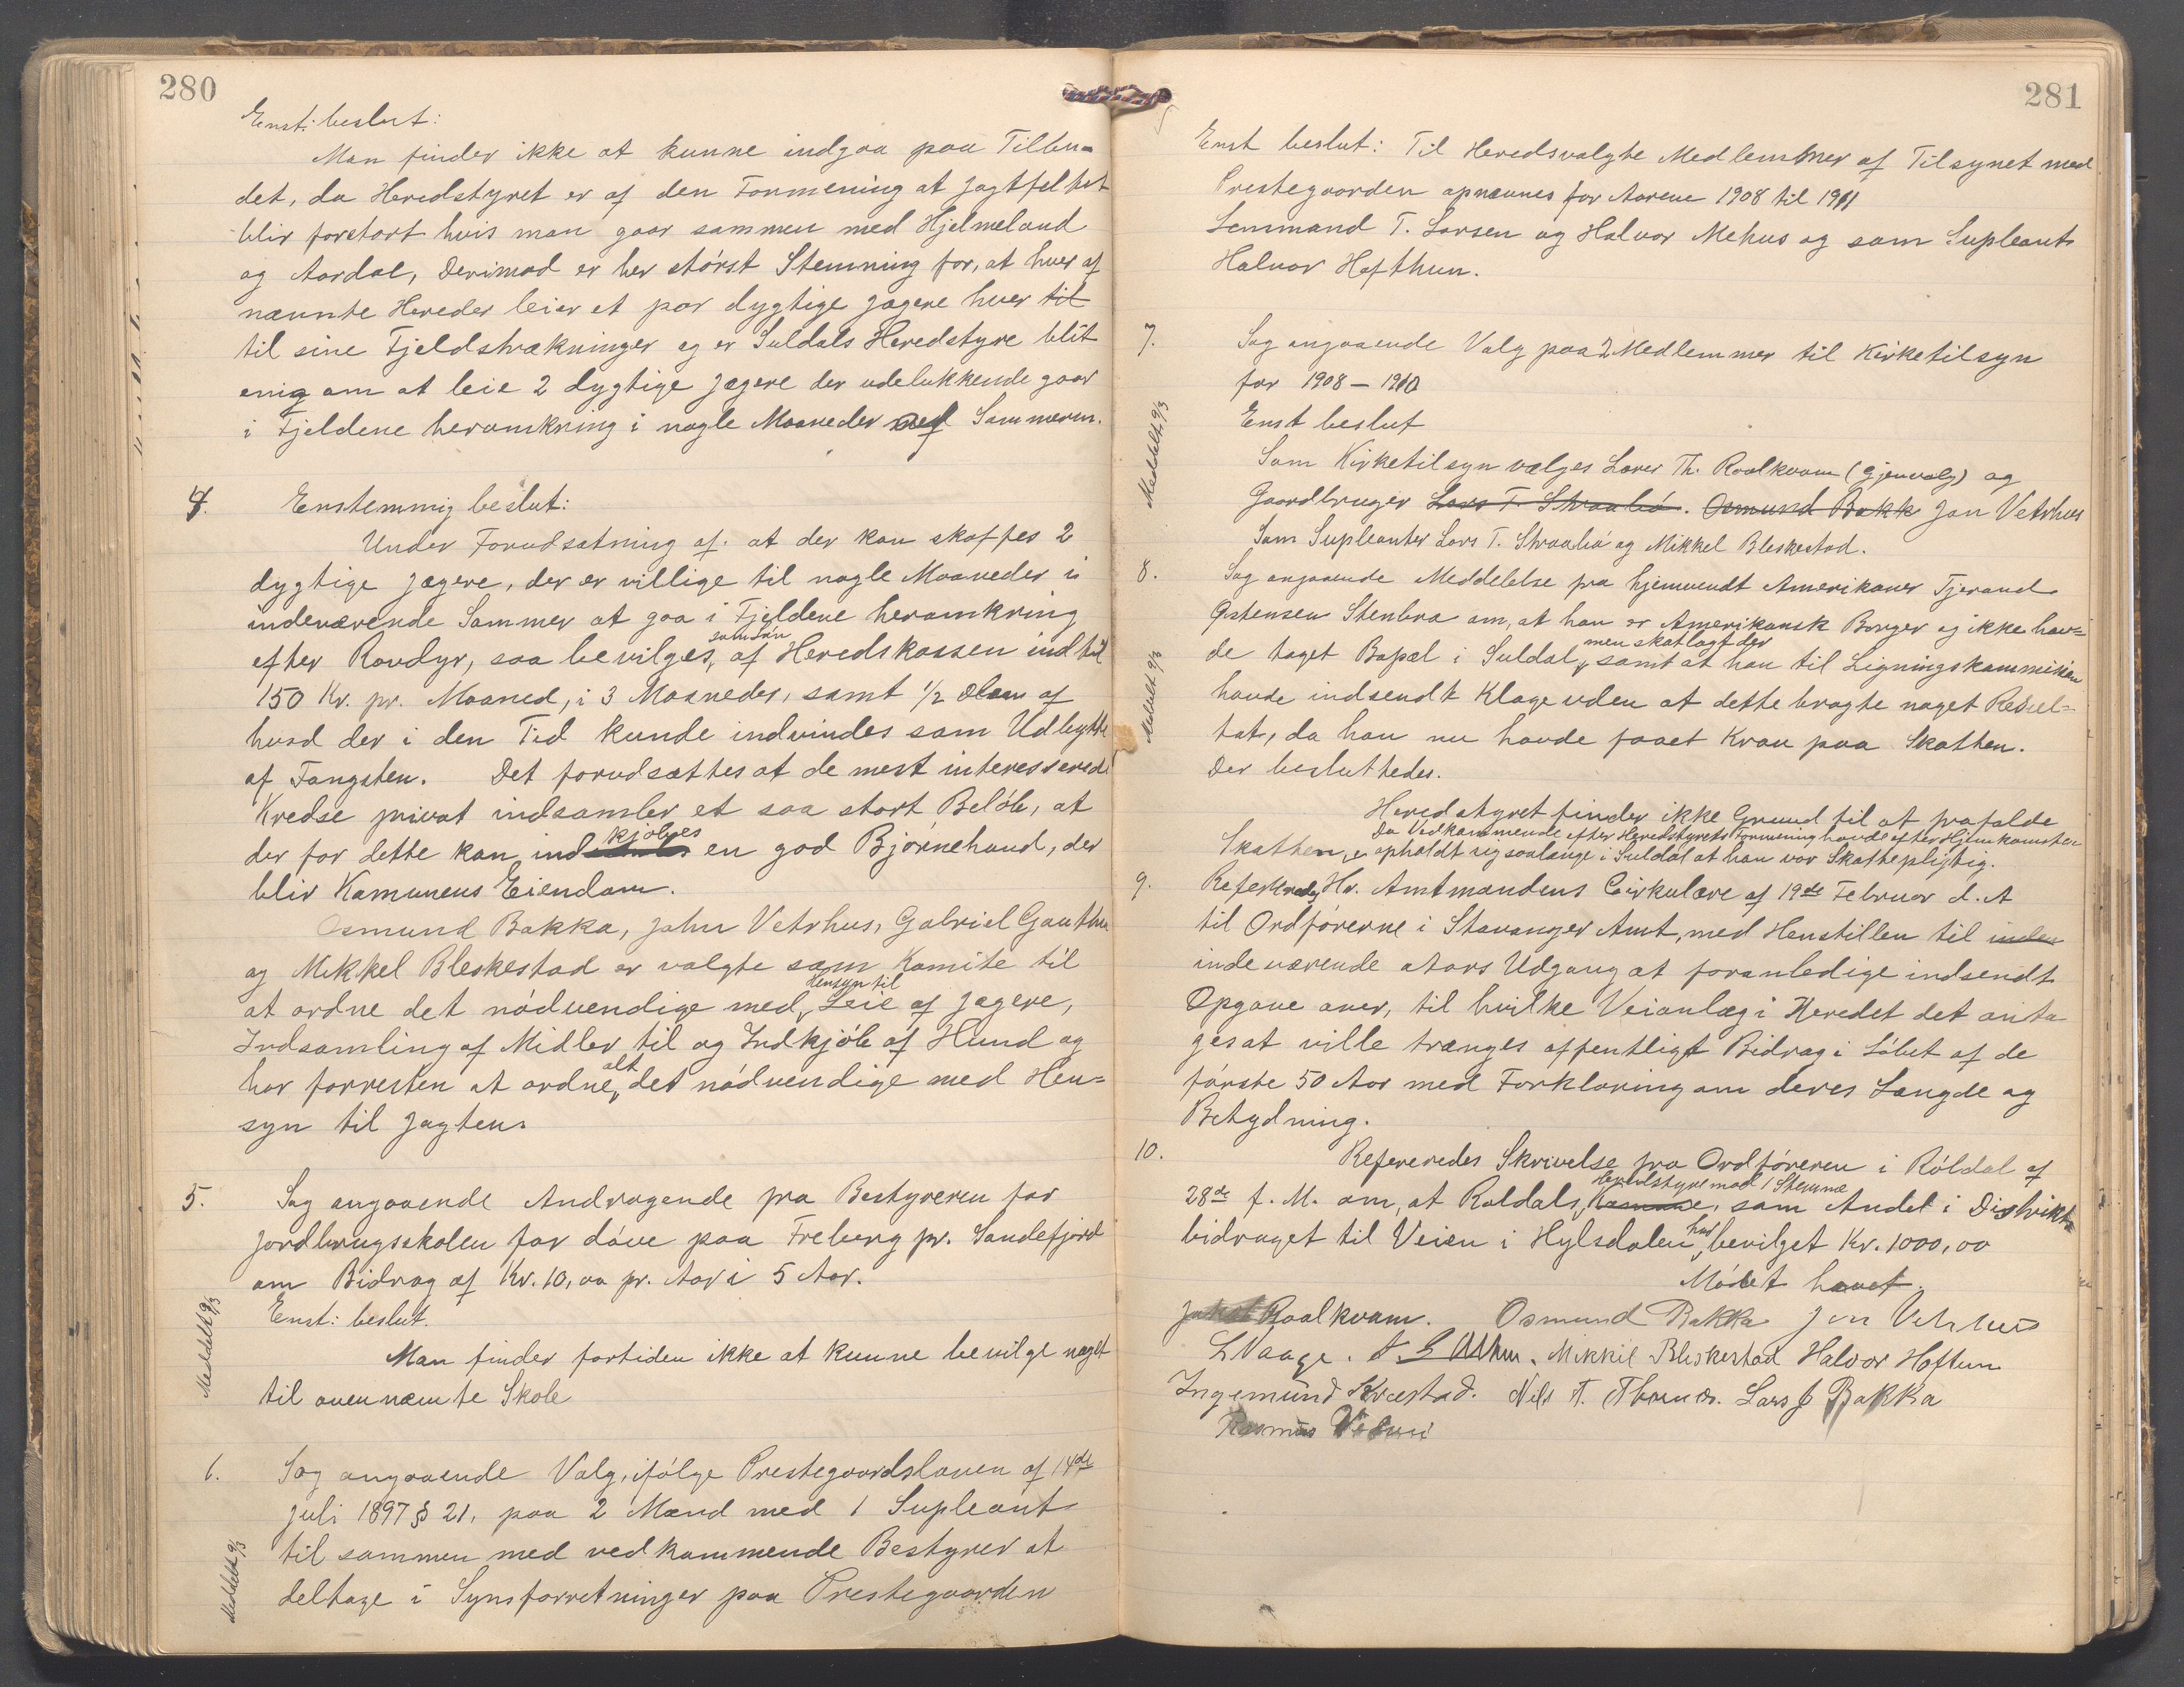 280
Enst: beslut:
Man finder ikke at kunne indgaa paa Tilbu-
det, da Heredstyret er af den Formening at Jagtfeltet
blir forstort hvis man gaar sammen med Hjelmeland
og Aardal, Derimod er her störst Stemning for, at hver af
nævnte Hereder leier et par dygtige Jægere hver til
til sine Fjeldstrækninger og er Suldals Heredstyre blit
enig om at leie 2 dygtige Jægere der udelukkende gaar
i Fjeldene heromkring i nogle Maaneder Sommeren.
4. Enstemmig beslut:
Under Forudsætning af at der kan skaffes 2
dygtige Jægere, der er villige til nogle Maaneder i
indeværende Sommer at gaa i Fjeldene heromkring
efter Rovdyr, saa bevilges, af Heredskassen indtil
150 Kr. pr. Maaned, i 3 Maaneder, samt 1/2 delen af
hvad der i den Tid kunde indvindes som Udbytte
af Fangsten. Det forudsættes at de mest interesserede
Kredse privat indsamler et saa stort Belöb, at
der for dette kan indkjöbes en god Björnehund, der
blir Komunens Eiendom.
Osmund Bakka, John Vetrhus, Gabriel Gauthun
og Mikkel Bleskestad er valgte som Komite til
at ordne det nödvendige med Hensyn til Leie af Jægere,
Indsamling af Midler til og Indkjöb af Hund og
har forresten at ordne alt det nödvendige med Hen-
syn til Jagten.
5. Sag angaaende Andragende fra Bestyreren for
Jordbrugsskolen for döve paa Freberg pr. Sandefjord
om Bidrag af Kr. 10,00 pr. Aar i 5 Aar.
Meddelt 9/3
Enst: beslut.
Man finder fortiden ikke at kunne bevilge noget
til ovennævnte Skole
6. Sag angaaende Valg, ifölge Prestegaardsloven af 14de
Juli 1897 § 21, paa 2 Mænd med 1 Supleant
til sammen med vedkommende Bestyrer at
deltage i Synsforretninger paa Prestegaarden
Meddelt 9/3
281
Enst beslut: Til Heredsvalgte Medlemmer af Tilsynet med
Prestegaarden opnævnes for Aarene 1908 til 1911
Lensmand T. Larsen og Halvor Mehus og som Supleant
Halvor Hofthun.
7. Sag angaaende Valg paa 2 Medlemmer til Kirketilsyn
for 1908 – 1910
Meddelt 9/3
Enst beslut
Som Kirketilsyn vælges Lærer Th. Roalkvam (Gjenvalg) og
Gaardbruger Lars T. Straabö. Osmund Bakk Jon Vetrhus
Som Supleanter Lars T. Straabö og Mikkel Bleskestad.
8. Sag angaaende Meddelelse fra hjemvendt Amerikaner Tjerand
Østensen Stenbra om, at han er Amerikansk Borger og ikke hav-
de taget Bopæl i Suldal, men skatlagt der samt at han til Ligningskommisionen
Meddelt 9/3
havde indsendt Klage uden at dette bragte noget Resul-
tat, da han nu havde faaet Krav paa Skatten.
Der besluttedes.
Heredstyret finder ikke Grund til at frafalde
da Vedkommende efter Heredstyrets Formening havde efter Hjemkomsten
Skatten, opholdt sig saalænge i Suldal at han var Skattepligtig.
9. Refereredes Hr. Amtmandens Cirkulære af 19de Februar d. A
til Ordförerne i Stavanger Amt, med Henstillen til inden
indeværende Aars Udgang at foranledige indsendt
Opgave over, til hvilke Veianlæg i Heredet det anta-
ges at ville trænges offentligt Bidrag i Löbet af de
förste 50 Aar med Forklaring om deres Længde og
Betydning.
10. Refereredes Skrivelse fra Ordföreren i Röldal af
Heredstyre mod 1 Stemme
28de f. M. om, at Roldals, Komune, som Andel i Distrikts-
bidraget til Veien i Hylsdalen har bevilget Kr. 1000,00
Mödet hævet.
Jakob Roalkvam. Osmund Bakka Jon Vetrhus
L Vaage. Mikkel Bleskestad Halvor Hoftun
Ingemund Kvæstad. Nils T. Lars J Bakka
Rasmus